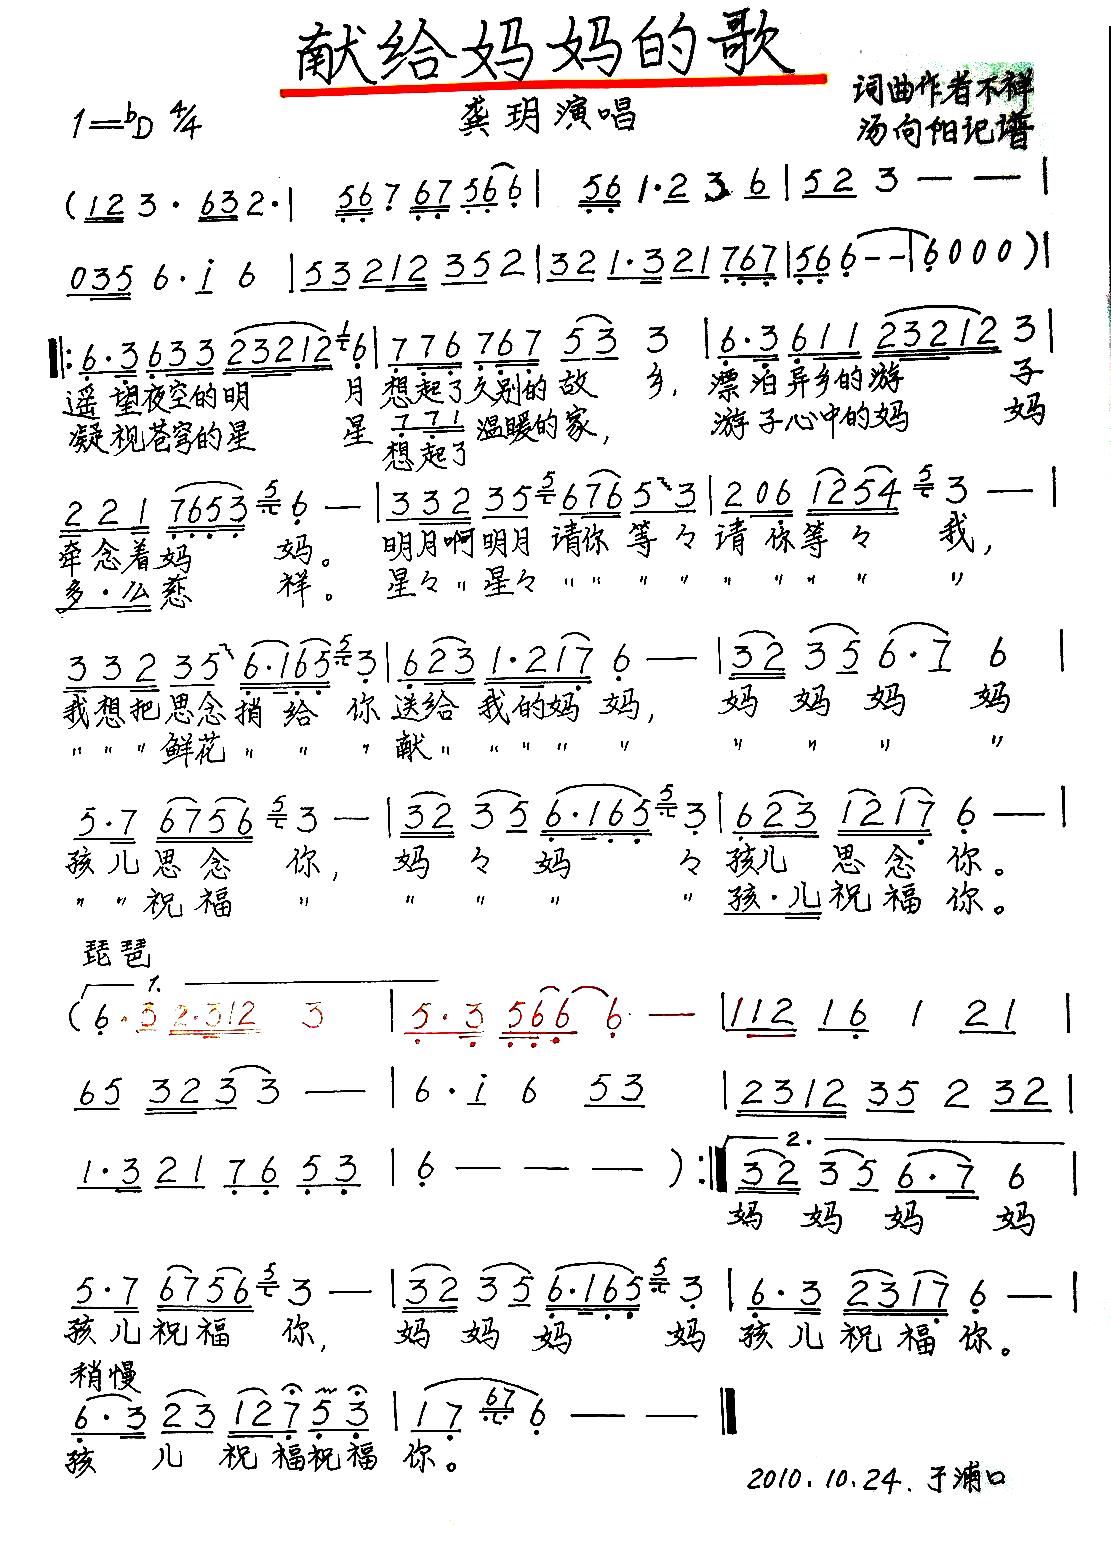 献给妈妈的歌
1=♭D 4/4
龚玥演唱
词曲作者不祥
汤向阳记谱
(123· 632·| 567 67 566| 561·236|523--|
0356·i6|53212 352|32 1·321 767|566--|6000)|
‖:6·3633 23212 6|776 767 53 3|6·3611 23212 3|
遥望夜空的明 月 想起了久别的故 乡, 漂泊异乡的游 子
凝视苍穹的星 星 771 温暖的家, 游子心中的妈 妈
想起了
221 7653 5 6-|332 35 5 676 53|206 1254 5 3-|
牵念着妈 妈。 明月啊明月 请你等々 请你等々 我,
多·么慈 祥。 星々〃星々〃〃〃〃〃〃〃〃 〃
332 35 6·165 5 3|623 1·217 6-|32 35 6·7 6|
我想把思念捎给 你 送给 我的妈 妈, 妈 妈 妈 妈
〃〃〃鲜花〃〃 〃 献〃 〃〃〃 〃 〃 〃 〃 〃
5·7 6756 5 3-|32 35 6·165 5 3|623 1217 6-|
孩儿思念 你, 妈々妈 々 孩儿 思念你。
〃〃祝福 〃 〃 〃 〃 〃 孩·儿祝福你。
琵琶
1.
(6·3 2·312 3|5·3 566 6-|112 16 1 21|
65 3233--|6·i 6 53|2312 35 2 32|
1·3 21 76 53|6---):‖
2.
32 35 6·7 6|
妈 妈 妈 妈
5·7 6756 5 3-|32 35 6·165 5 3|6·3 2317 6-|
孩儿祝福 你, 妈 妈 妈 妈 孩儿祝福你。
稍慢
6·3 23 127 53|17 67 6--‖
孩 儿 祝福祝福 你。
2010.10.24.于浦口